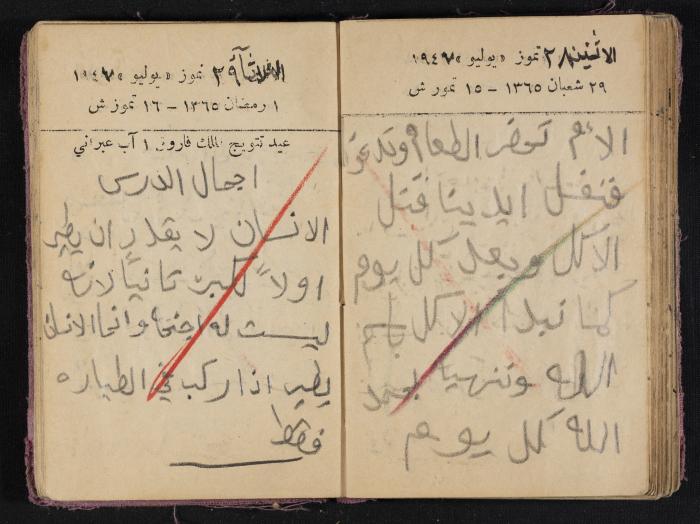 الاثنين ٢٨ تموز «يوليو» ١٩٤٧
٢٩ شعبان ١٣٦٥ – ١٥ تموز ش
الأم تحضر الطعام وتدعونا
فنغسل ايدينا قبل
الاكل وبعد كل يوم
كما نبدأ الاكل باسم
الله وننهيه بحمد
الله كل يوم
الثلاثاء ٢٩ تموز «يوليو» ١٩٤٧
١ رمضان ١٣٦٥ – ١٦ تموز ش
عيد تتويج الملك فاروق ١ آب عبراني
اجمال الدرس
الانسان لا يقدر ان يطير
اولاً كبير ثانياً لانه
ليست له اجنحة وانما الانسان
يطير اذا ركب في الطياره
فقط